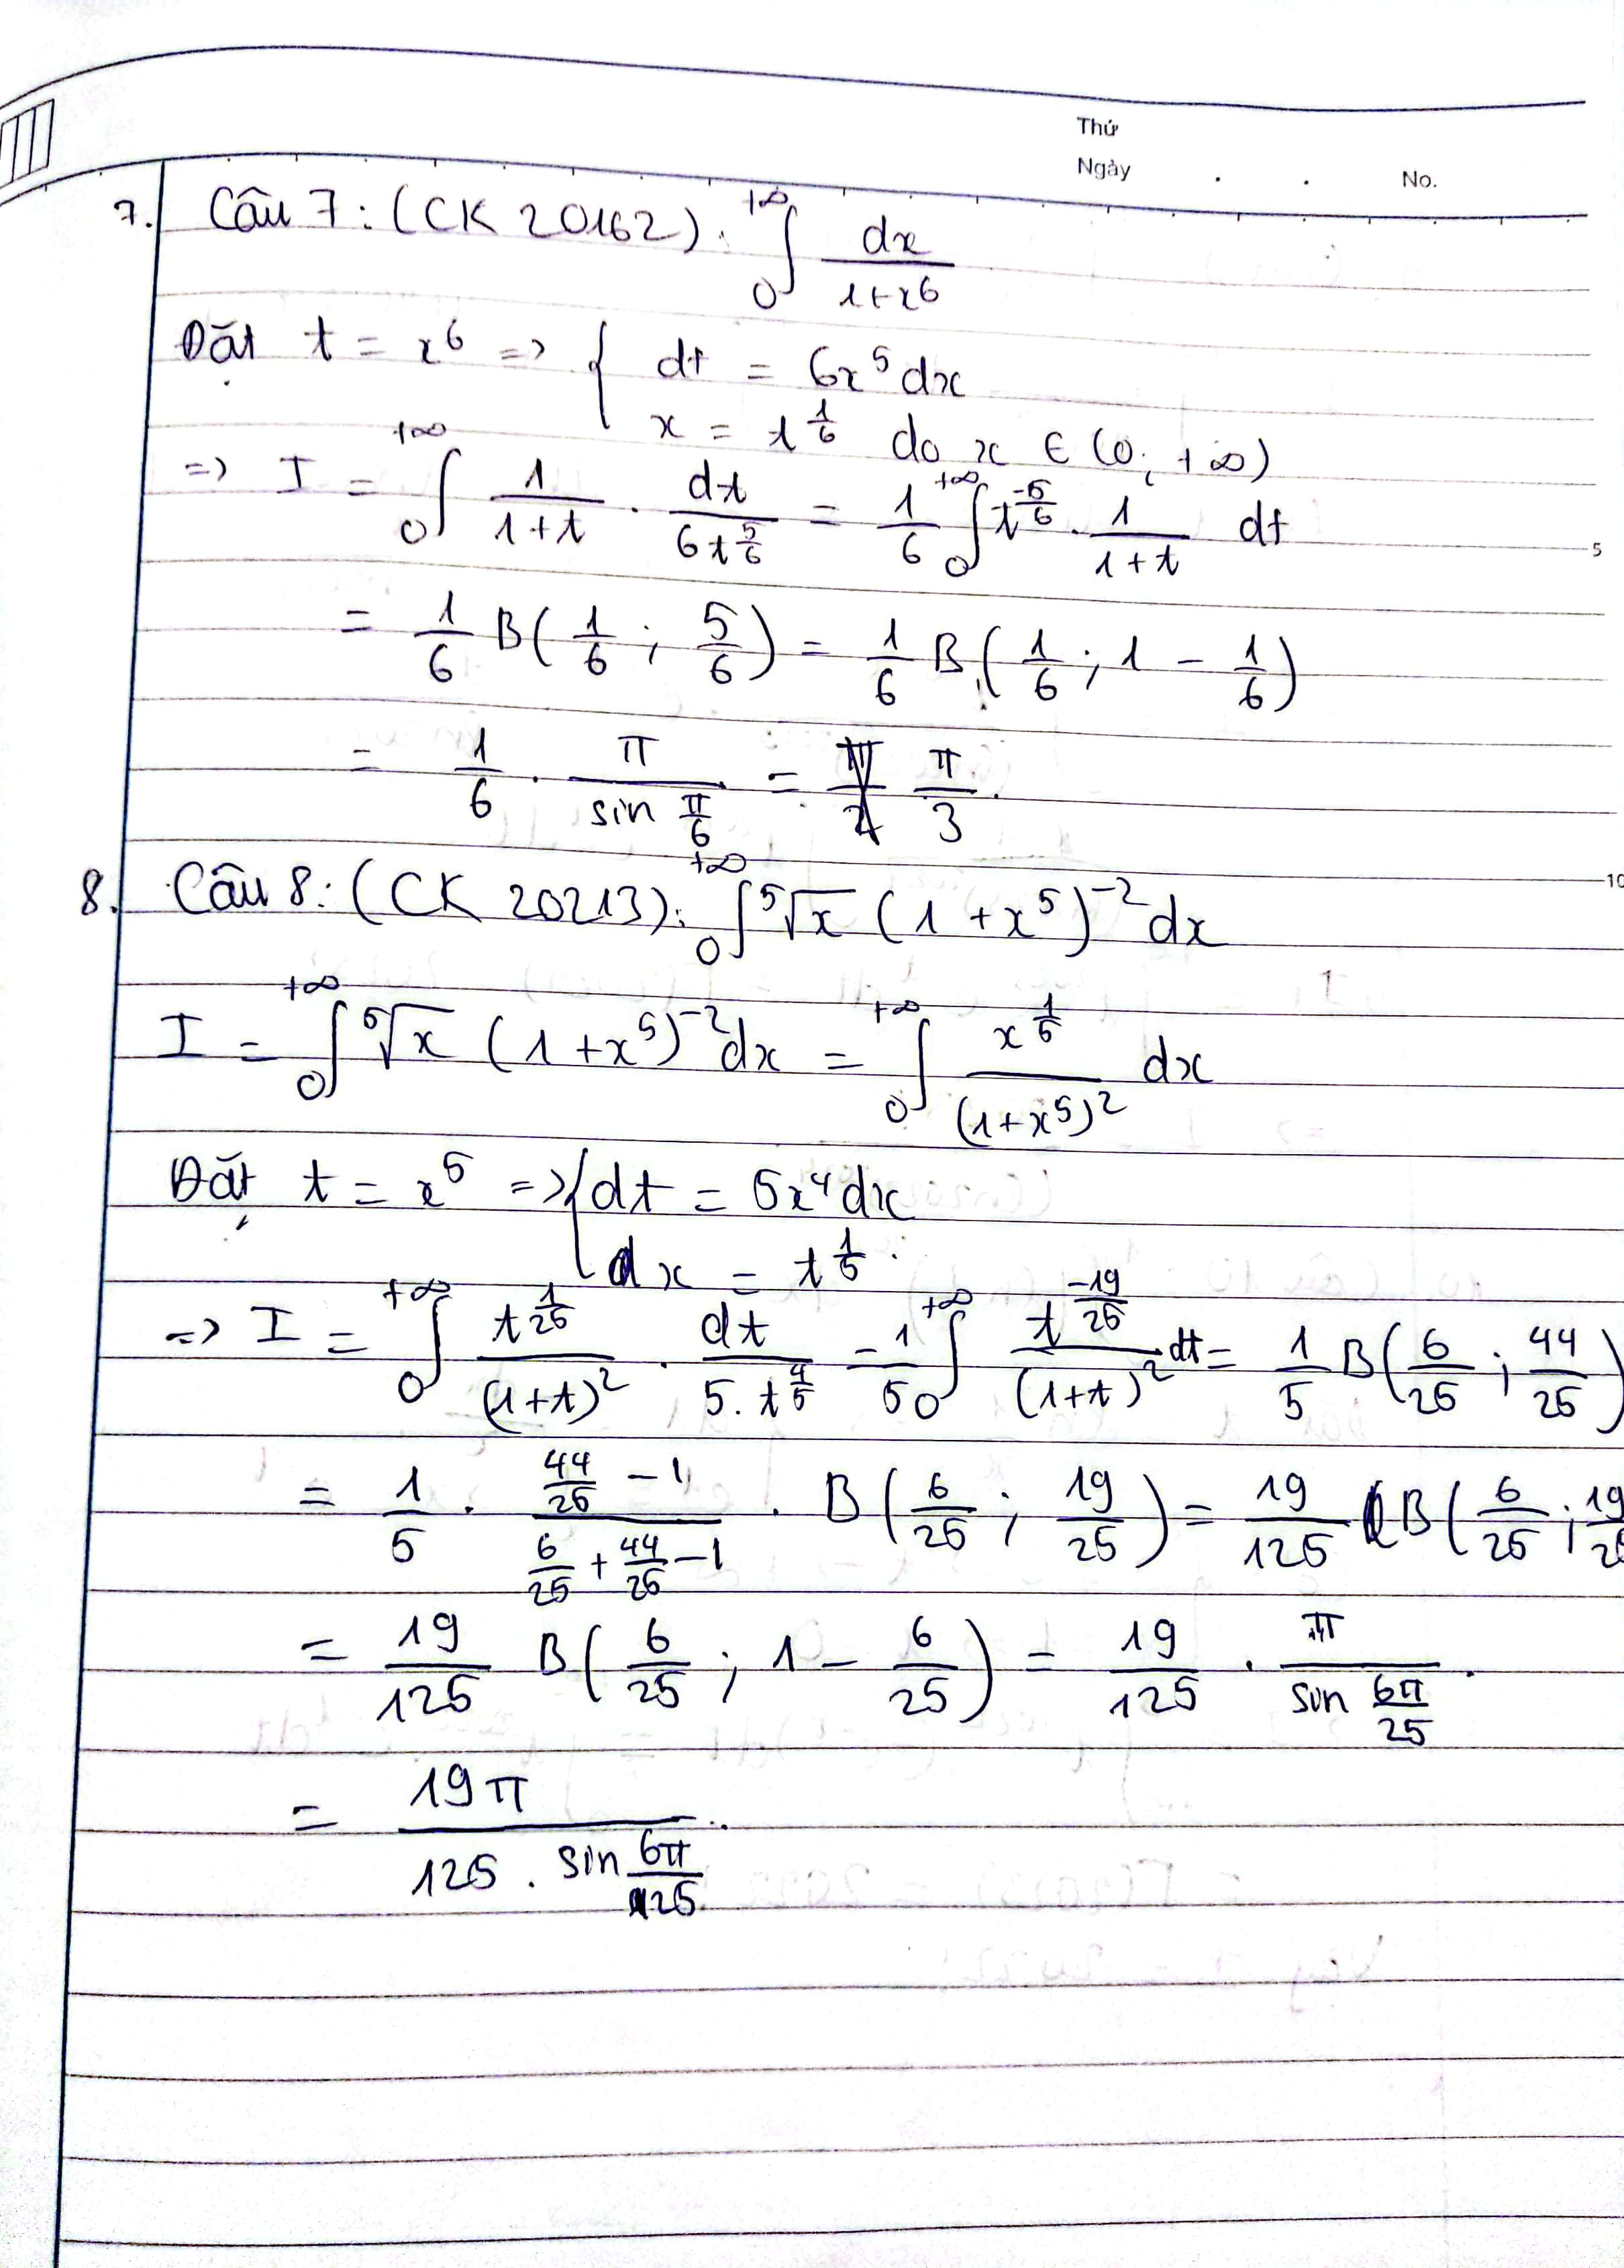 Thứ
Ngày . . No.
7. Câu 7 : (CK 20162) : ∫₀^{+∞} dx/(1+x⁶)
Đặt t = x⁶ => { dt = 6x⁵dx
x = t^{1/6} do x ∈ (0; +∞)
=> I = ∫₀^{+∞} 1/(1+t) . dt/(6t^{5/6}) = 1/6 ∫₀^{+∞} t^{-5/6} . 1/(1+t) dt
5
= 1/6 B(1/6 ; 5/6) = 1/6 B(1/6 ; 1 - 1/6)
= 1/6 . π/(sin π/6) = π/3.
10
8. Câu 8 : (CK 20213) : ∫₀^{+∞} ⁵√x (1 + x⁵)^{-2} dx
I = ∫₀^{+∞} ⁵√x (1 + x⁵)^{-2} dx = ∫₀^{+∞} x^{1/5}/(1+x⁵)² dx
Đặt t = x⁵ => { dt = 5x⁴dx
dx = t^{1/5}
=> I = ∫₀^{+∞} t^{1/25}/(1+t)² . dt/(5.t^{4/5}) = 1/5 ∫₀^{+∞} t^{-19/25}/(1+t)² dt = 1/5 B(6/25 ; 44/25)
= 1/5 . (44/25 - 1)/(6/25 + 44/25 - 1) . B(6/25 ; 19/25) = 19/125 B(6/25 ; 19/25
= 19/125 B(6/25 ; 1 - 6/25) = 19/125 . π/(sin 6π/25) .
= 19π/(125 . sin 6π/25) .